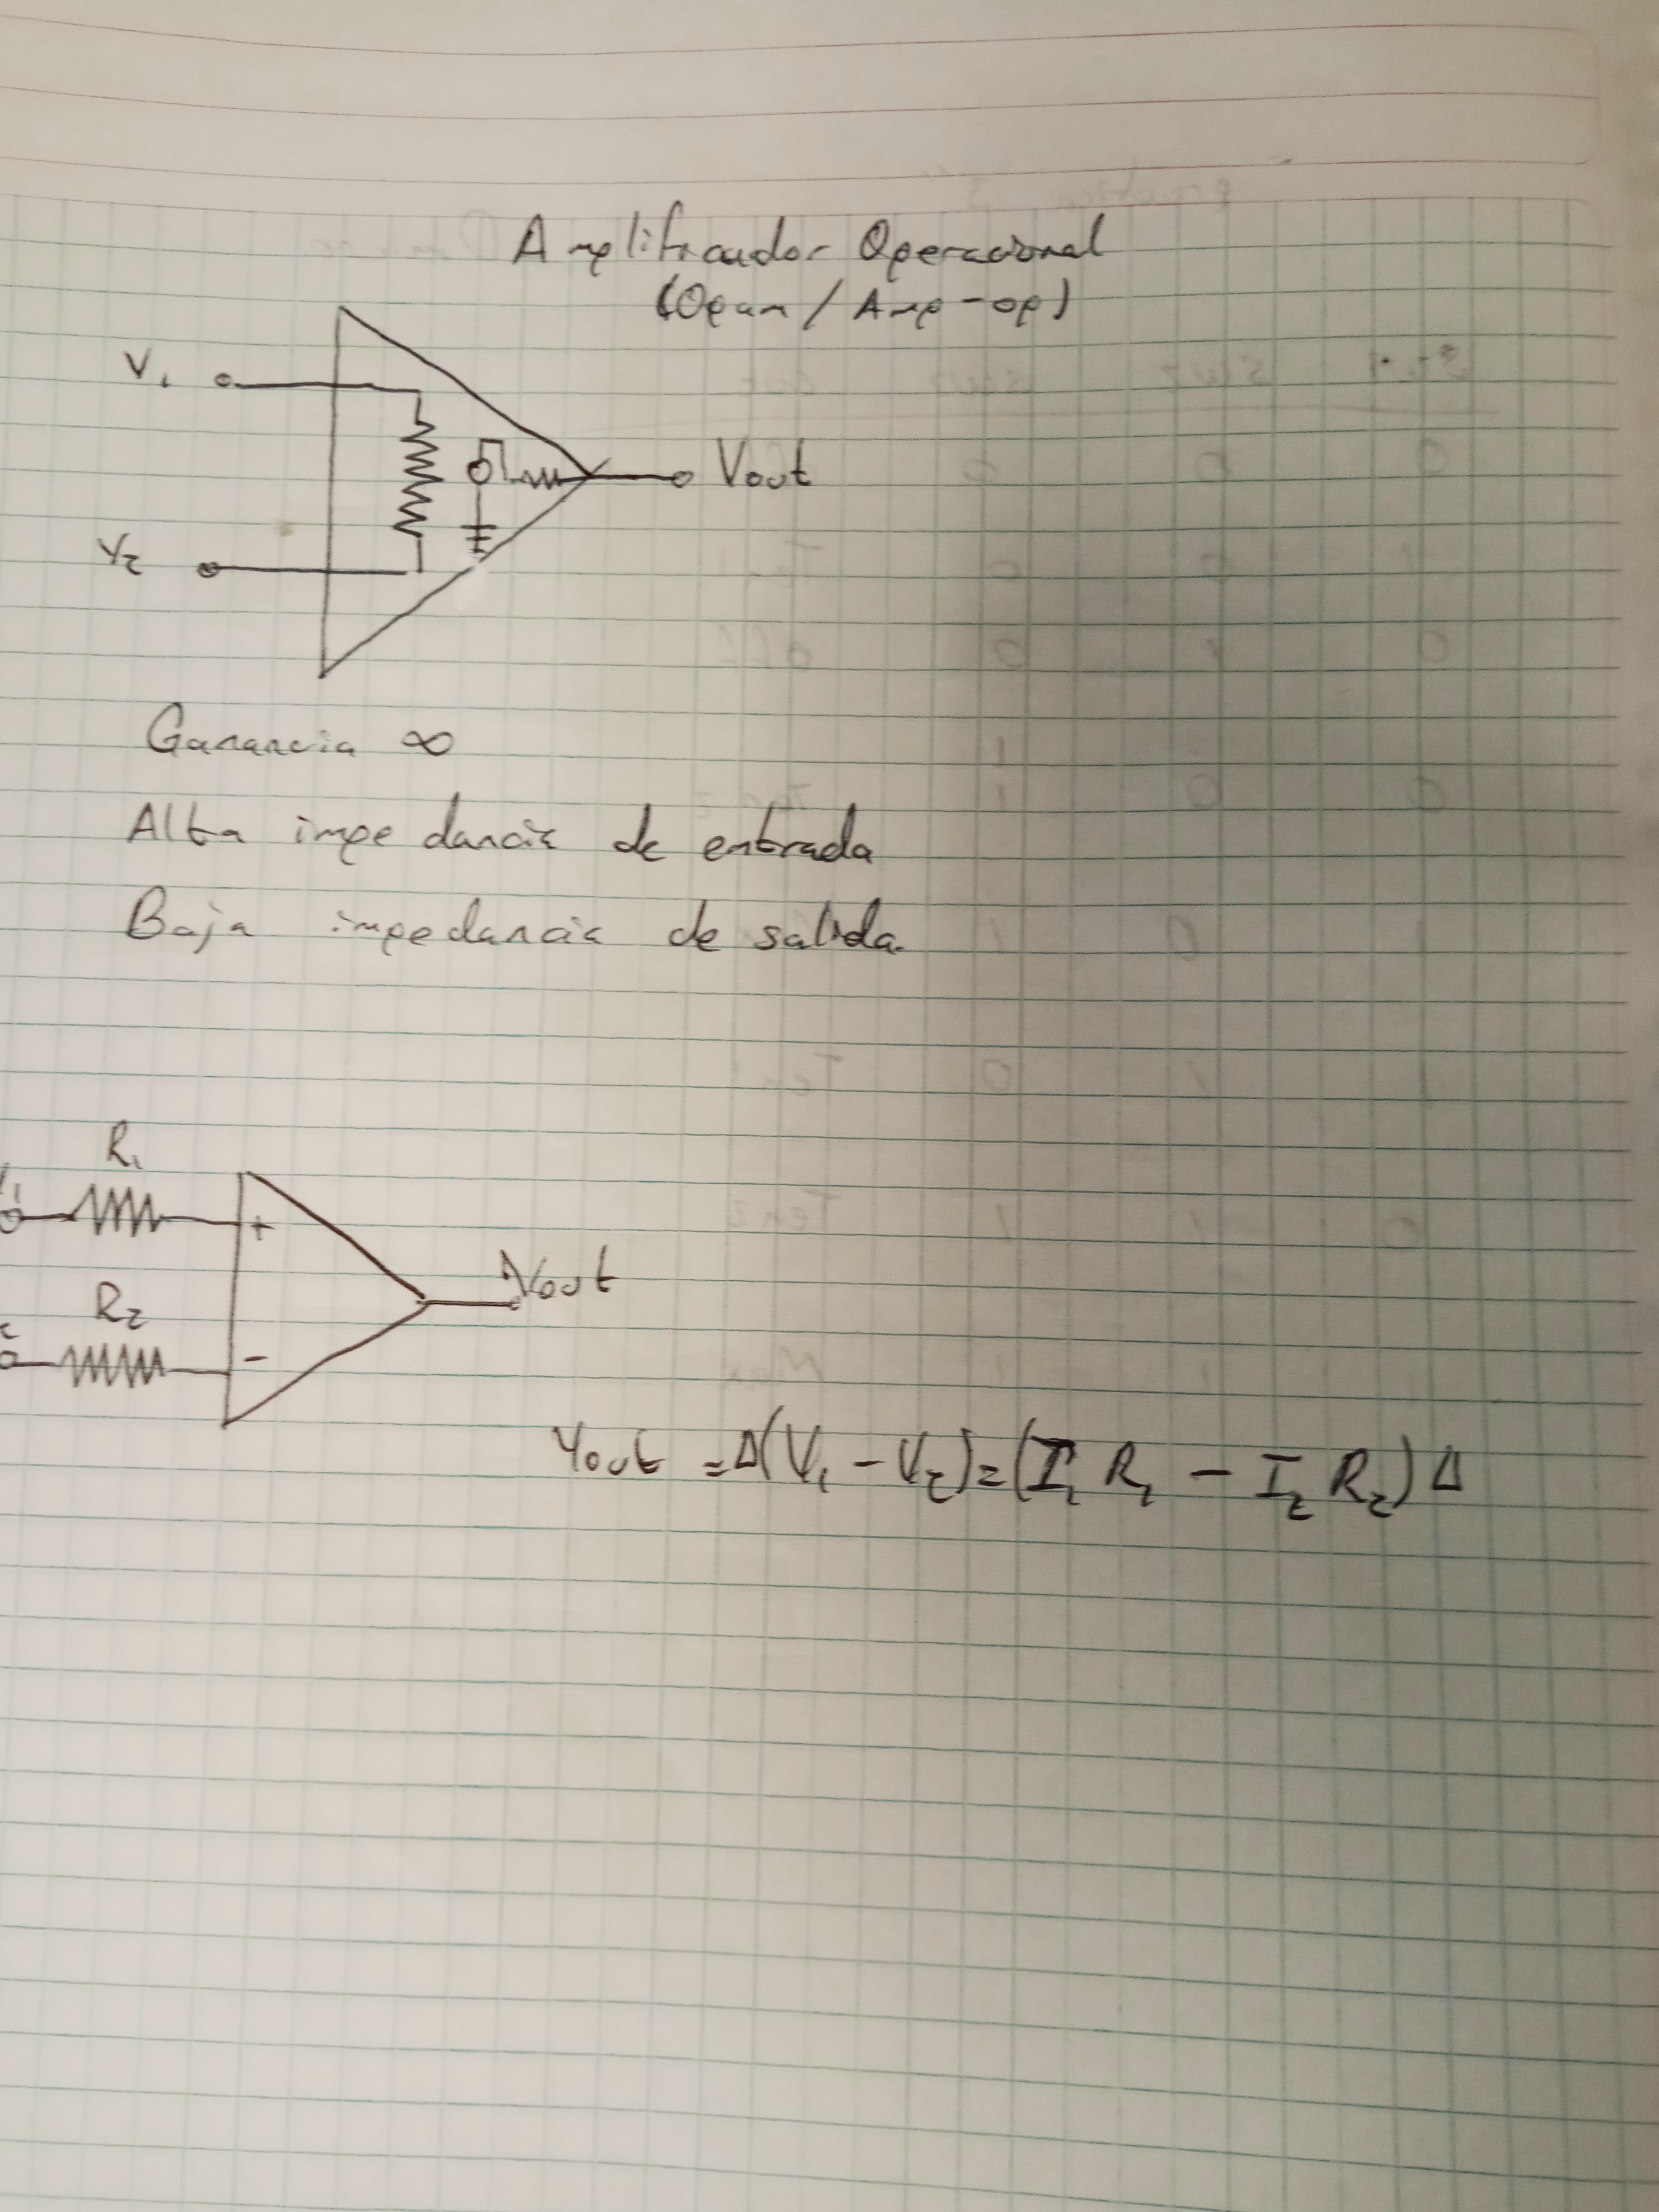 Amplificador Operacional
(Opam / Amp-op)
V₁
Vout
V₂
Ganancia ∞
Alta impedancia de entrada
Baja impedancia de salida.
R₁
V₁
+
Vout
R₂
-
Vout = Δ(V₁ - V₂) = (I₁ R₁ - I₂ R₂) Δ